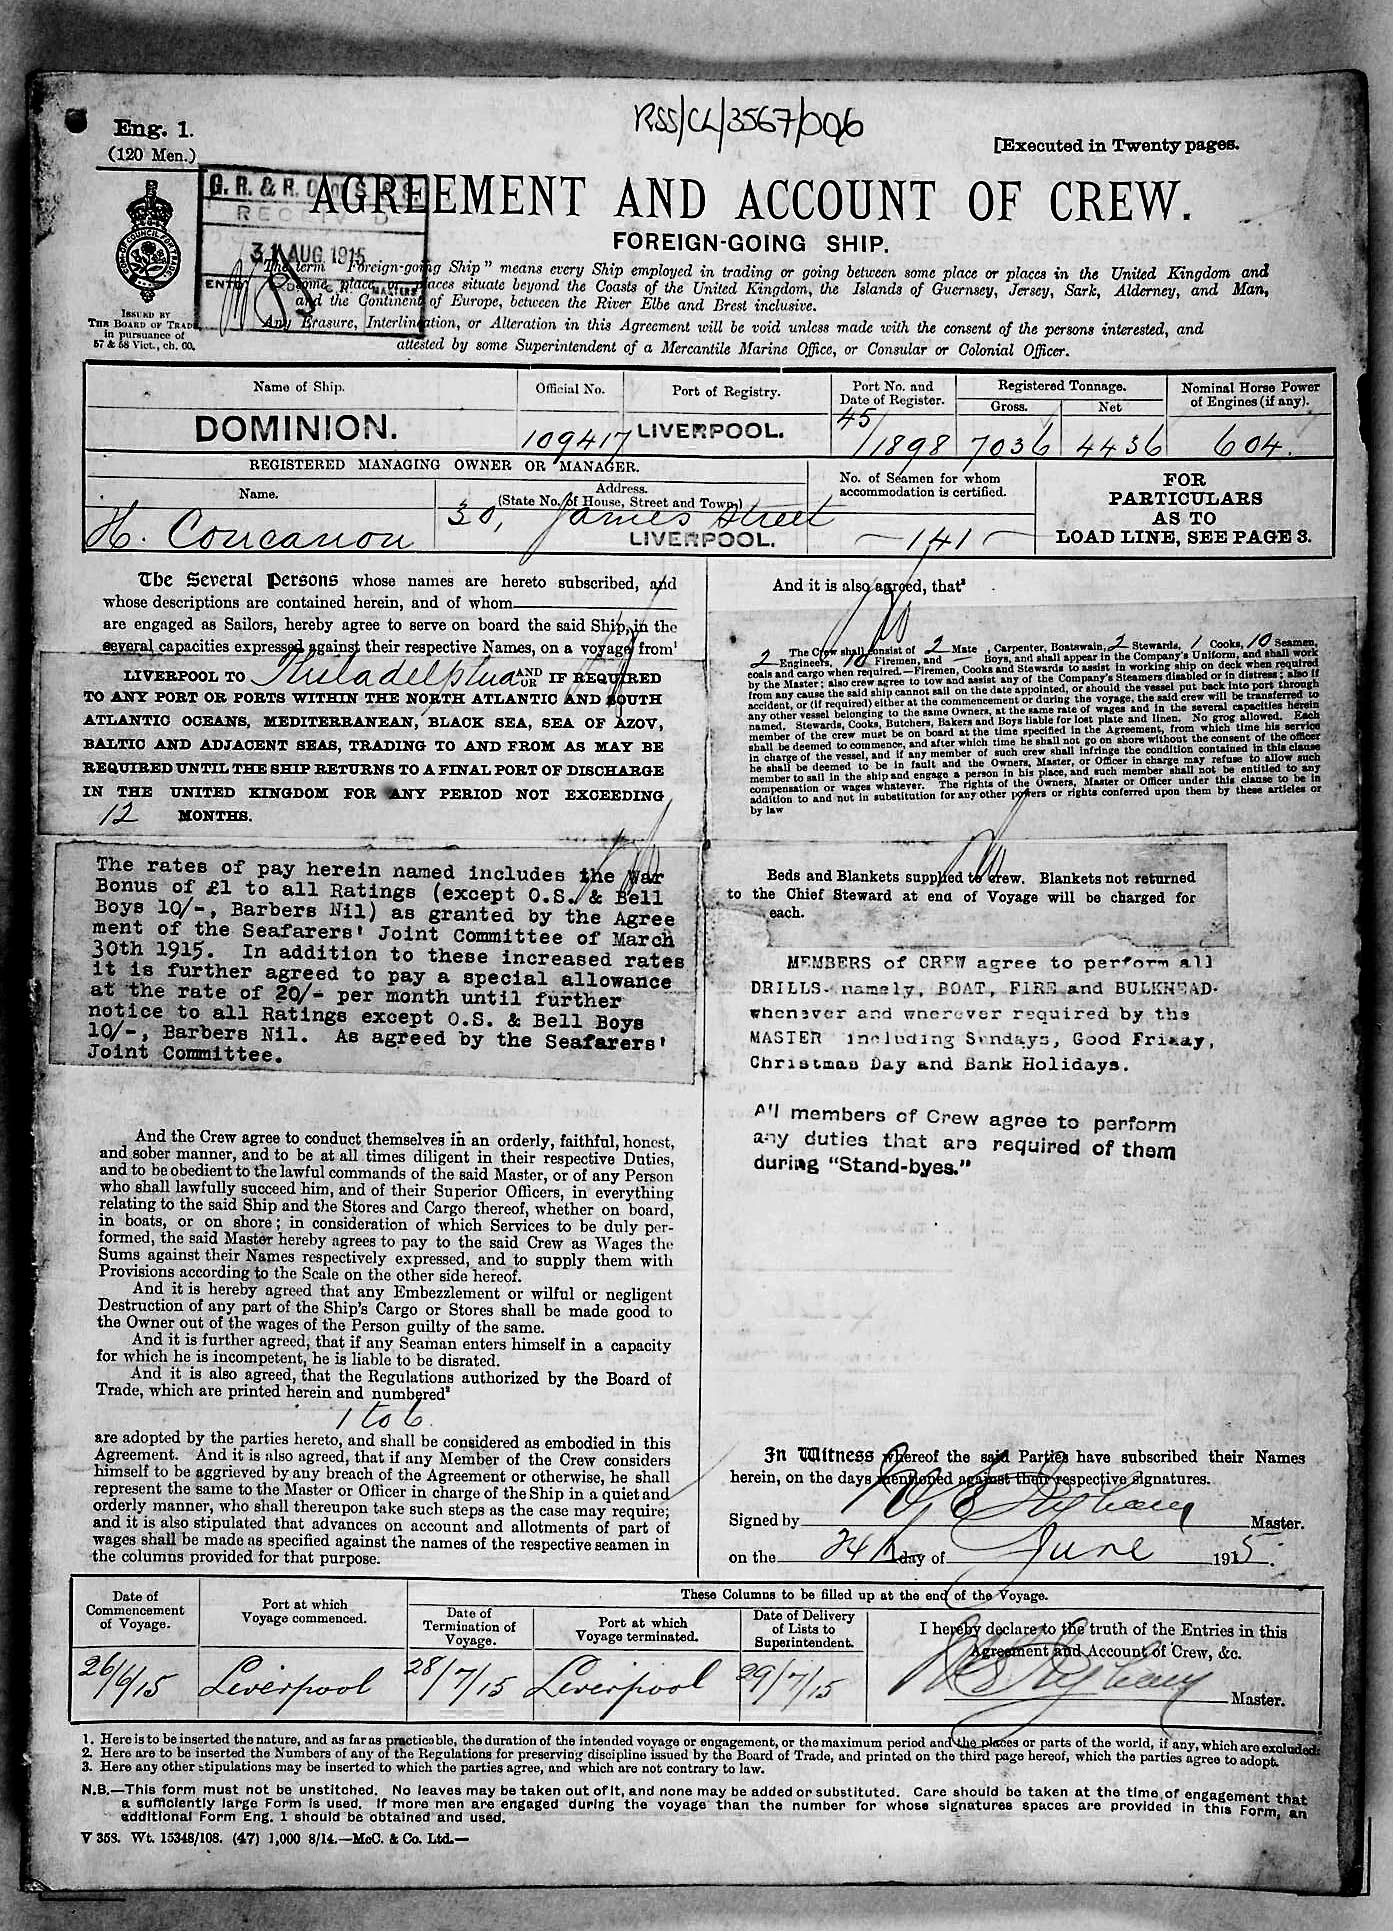 RSS/CL/3567/006
Eng. 1.
(120 Men.)
[Executed in Twenty pages.
G. R. & R.
RECEIVED
31 AUG 1915
ENTD
AGREEMENT AND ACCOUNT OF CREW.
FOREIGN-GOING SHIP.
The term "Foreign-going Ship" means every Ship employed in trading or going between some place or places in the United Kingdom and
some place or places situate beyond the Coasts of the United Kingdom, the Islands of Guernsey, Jersey, Sark, Alderney, and Man,
and the Continent of Europe, between the River Elbe and Brest inclusive.
Any Erasure, Interlineation, or Alteration in this Agreement will be void unless made with the consent of the persons interested, and
attested by some Superintendent of a Mercantile Marine Office, or Consular or Colonial Officer.
ISSUED BY
THE BOARD OF TRADE
in pursuance of
57 & 58 Vict., ch. 60.
Name of Ship.
Official No.
Port of Registry.
Port No. and
Date of Register.
Registered Tonnage.
Gross.
Net
Nominal Horse Power
of Engines (if any).
DOMINION.
109417
LIVERPOOL.
45/1898
7036
4436
604.
REGISTERED MANAGING OWNER OR MANAGER.
Name.
Address.
(State No. of House, Street and Town.)
No. of Seamen for whom
accommodation is certified.
FOR
PARTICULARS
AS TO
LOAD LINE, SEE PAGE 3.
H. Concanon
30, James Street
LIVERPOOL.
141
The Several Persons whose names are hereto subscribed, and
whose descriptions are contained herein, and of whom
are engaged as Sailors, hereby agree to serve on board the said Ship, in the
several capacities expressed against their respective Names, on a voyage from¹
LIVERPOOL TO Philadelphia AND OR IF REQUIRED
TO ANY PORT OR PORTS WITHIN THE NORTH ATLANTIC AND SOUTH
ATLANTIC OCEANS, MEDITERRANEAN, BLACK SEA, SEA OF AZOV,
BALTIC AND ADJACENT SEAS, TRADING TO AND FROM AS MAY BE
REQUIRED UNTIL THE SHIP RETURNS TO A FINAL PORT OF DISCHARGE
IN THE UNITED KINGDOM FOR ANY PERIOD NOT EXCEEDING
12 MONTHS.
The rates of pay herein named includes the War
Bonus of £1 to all Ratings (except O.S. & Bell
Boys 10/-, Barbers Nil) as granted by the Agree
ment of the Seafarers' Joint Committee of March
30th 1915. In addition to these increased rates
it is further agreed to pay a special allowance
at the rate of 20/- per month until further
notice to all Ratings except O.S. & Bell Boys
10/-, Barbers Nil. As agreed by the Seafarers'
Joint Committee.
And the Crew agree to conduct themselves in an orderly, faithful, honest,
and sober manner, and to be at all times diligent in their respective Duties,
and to be obedient to the lawful commands of the said Master, or of any Person
who shall lawfully succeed him, and of their Superior Officers, in everything
relating to the said Ship and the Stores and Cargo thereof, whether on board,
in boats, or on shore; in consideration of which Services to be duly per-
formed, the said Master hereby agrees to pay to the said Crew as Wages the
Sums against their Names respectively expressed, and to supply them with
Provisions according to the Scale on the other side hereof.
And it is hereby agreed that any Embezzlement or wilful or negligent
Destruction of any part of the Ship's Cargo or Stores shall be made good to
the Owner out of the wages of the Person guilty of the same.
And it is further agreed, that if any Seaman enters himself in a capacity
for which he is incompetent, he is liable to be disrated.
And it is also agreed, that the Regulations authorized by the Board of
Trade, which are printed herein and numbered²
1 to 6.
are adopted by the parties hereto, and shall be considered as embodied in this
Agreement. And it is also agreed, that if any Member of the Crew considers
himself to be aggrieved by any breach of the Agreement or otherwise, he shall
represent the same to the Master or Officer in charge of the Ship in a quiet and
orderly manner, who shall thereupon take such steps as the case may require;
and it is also stipulated that advances on account and allotments of part of
wages shall be made as specified against the names of the respective seamen in
the columns provided for that purpose.
And it is also agreed, that³
The Crew shall consist of 2 Mate, Carpenter, Boatswain, 2 Stewards, 1 Cooks, 10 Seamen,
2 Engineers, 10 Firemen, and — Boys, and shall appear in the Company's Uniform, and shall work
coals and cargo when required.—Firemen, Cooks and Stewards to assist in working ship on deck when required
by the Master; also crew agree to tow and assist any of the Company's Steamers disabled or in distress; also if
from any cause the said ship cannot sail on the date appointed, or should the vessel put back into port through
accident, or (if required) either at the commencement or during the voyage, the said crew will be transferred to
any other vessel belonging to the same Owners, at the same rate of wages and in the several capacities herein
named. Stewards, Cooks, Butchers, Bakers and Boys liable for lost plate and linen. No grog allowed. Each
member of the crew must be on board at the time specified in the Agreement, from which time his service
shall be deemed to commence, and after which time he shall not go on shore without the consent of the officer
in charge of the vessel, and if any member of such crew shall infringe the condition contained in this clause
he shall be deemed to be in fault and the Owners, Master, or Officer in charge may refuse to allow such
member to sail in the ship and engage a person in his place, and such member shall not be entitled to any
compensation or wages whatever. The rights of the Owners, Master or Officer under this clause to be in
addition to and not in substitution for any other powers or rights conferred upon them by these articles or
by law
Beds and Blankets supplied to crew. Blankets not returned
to the Chief Steward at end of Voyage will be charged for
each.
MEMBERS of CREW agree to perform all
DRILLS. namely, BOAT, FIRE and BULKHEAD.
whenever and wherever required by the
MASTER including Sundays, Good Friday,
Christmas Day and Bank Holidays.
All members of Crew agree to perform
any duties that are required of them
during "Stand-byes."
In Witness whereof the said Parties have subscribed their Names
herein, on the days mentioned against their respective signatures.
Signed by Master.
on the 24th day of June 1915.
Date of
Commencement
of Voyage.
Port at which
Voyage commenced.
These Columns to be filled up at the end of the Voyage.
Date of
Termination of
Voyage.
Port at which
Voyage terminated.
Date of Delivery
of Lists to
Superintendent.
I hereby declare to the truth of the Entries in this
Agreement and Account of Crew, &c.
26/6/15
Liverpool
28/7/15
Liverpool
29/7/15
Master.
1. Here is to be inserted the nature, and as far as practicable, the duration of the intended voyage or engagement, or the maximum period and the places or parts of the world, if any, which are excluded.
2. Here are to be inserted the Numbers of any of the Regulations for preserving discipline issued by the Board of Trade, and printed on the third page hereof, which the parties agree to adopt.
3. Here any other stipulations may be inserted to which the parties agree, and which are not contrary to law.
N.B.—This form must not be unstitched. No leaves may be taken out of it, and none may be added or substituted. Care should be taken at the time of engagement that
a sufficiently large Form is used. If more men are engaged during the voyage than the number for whose signatures spaces are provided in this Form, an
additional Form Eng. 1 should be obtained and used.
V 358. Wt. 15348/108. (47) 1,000 8/14.—McC. & Co. Ltd.—